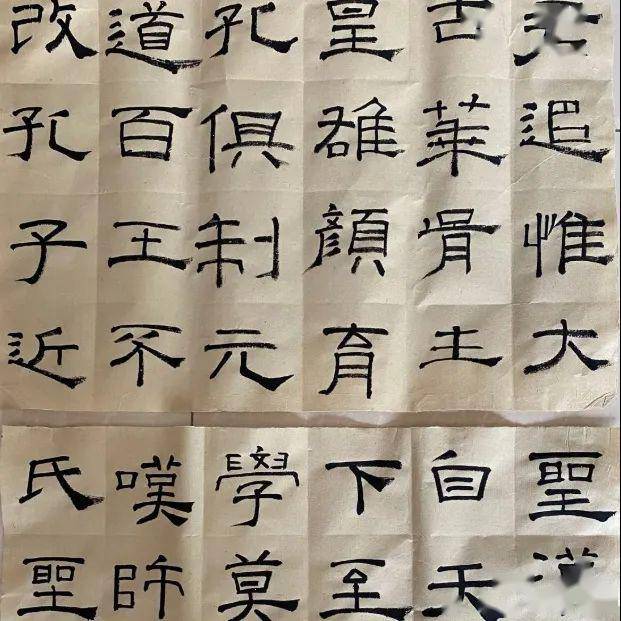 追惟大
古華胥生
皇雄顏育
孔俱制元
道百王不
改孔子近
聖
自天
下至
學莫
嘆師
氏聖